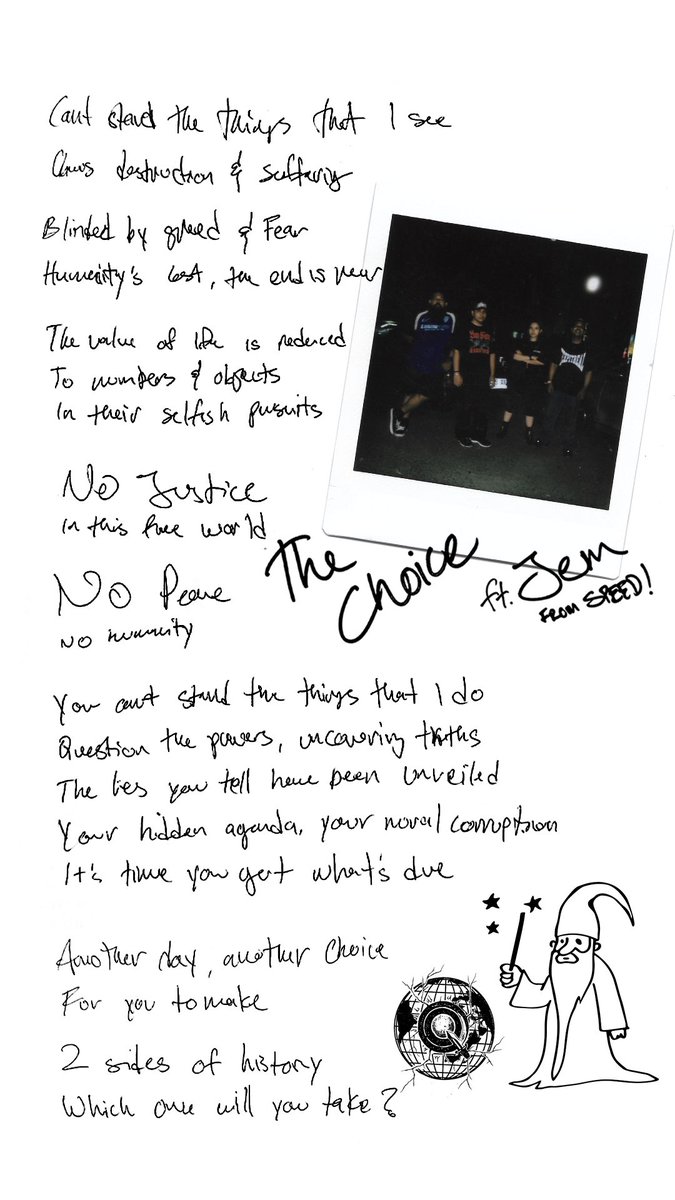 Cant stand the things that I see
Chaos destruction & suffering
Blinded by greed & Fear
Humanity's lost, the end is near
The value of life is reduced
To numbers & objects
In their selfish pursuits
No Justice
in this free world
No Peace
no humanity
The Choice
ft. Jem
FROM SPEED!
You cant stand the things that I do
Question the powers, uncovering truths
The lies you tell have been unveiled
Your hidden agenda, your moral corruption
It's time you get what's due
Another day, another choice
For you to make
2 sides of history
Which one will you take?